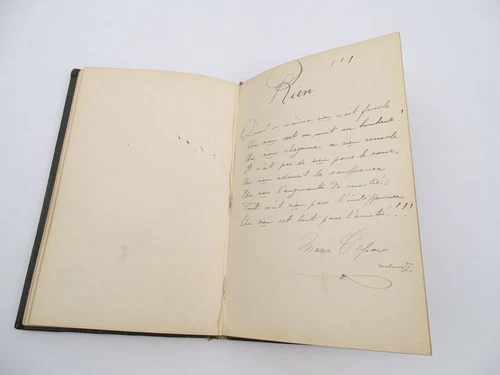 Rien !!!
Quand on s'aime, rien n'est frivole
Un rien sert ou nuit au bonheur !
Un rien chagrine, un rien console
Il n'est pas de rien pour le cœur.
Un rien adoucit la souffrance
Un rien l'augmente de moitié :
Tout n'est rien pour l'indifférence
Un rien est tout pour l'amitié !!!
Maria